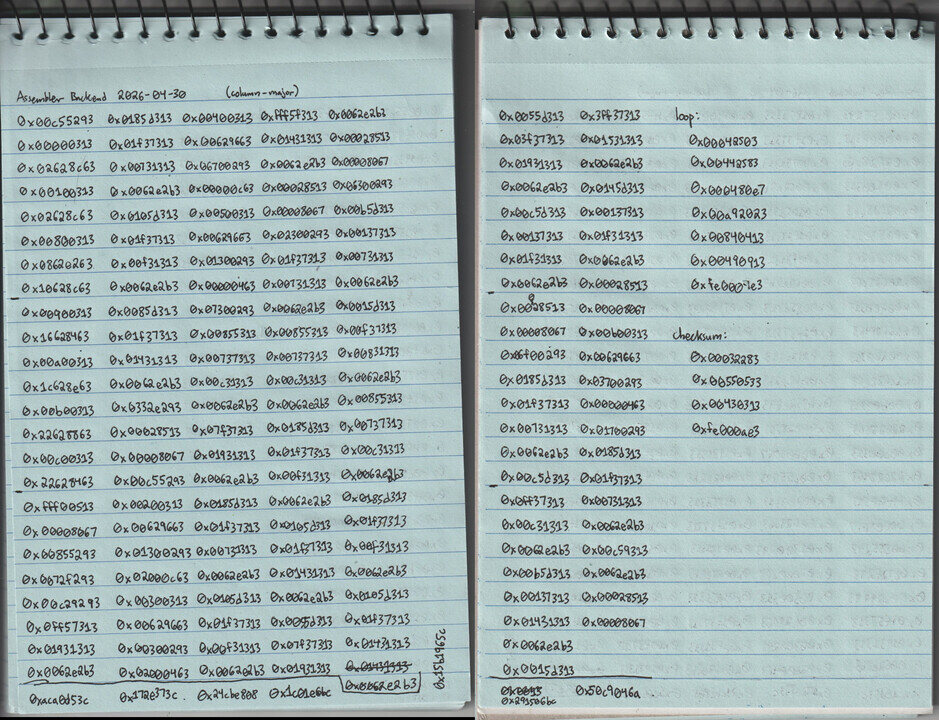 Assembler Backend 2026-04-30 (column-major)
0x00c55293 0x0185d313 0x00400313 0xfff5f313 0x0062e2b3
0x00000313 0x01f37313 0x00629663 0x01431313 0x00028513
0x02628c63 0x00731313 0x06700293 0x0062e2b3 0x00008067
0x00100313 0x0062e2b3 0x00000c63 0x00028513 0x06300293
0x02628c63 0x0105d313 0x00500313 0x00008067 0x00b5d313
0x00800313 0x01f37313 0x00629663 0x02300293 0x00137313
0x0862e263 0x00f31313 0x01300293 0x01f37313 0x00731313
0x10628c63 0x0062e2b3 0x00000463 0x00731313 0x0062e2b3
0x00900313 0x0085d313 0x07300293 0x0062e2b3 0x0015d313
0x16628463 0x01f37313 0x00855313 0x00855313 0x00f37313
0x00a00313 0x01431313 0x00737313 0x00737313 0x00831313
0x1c628e63 0x0062e2b3 0x00c31313 0x00c31313 0x0062e2b3
0x00b00313 0x0332e293 0x0062e2b3 0x0062e2b3 0x00855313
0x22628863 0x00028513 0x07f37313 0x0185d313 0x00737313
0x00c00313 0x00008067 0x01931313 0x01f37313 0x00c31313
0x22628463 0x00c55293 0x0062e2b3 0x00f31313 0x0062e2b3
0xfff00513 0x00200313 0x0185d313 0x0062e2b3 0x0185d313
0x00008067 0x00629663 0x01f37313 0x0105d313 0x01f37313
0x00855293 0x01300293 0x00731313 0x01f37313 0x00f31313
0x0072f293 0x02000c63 0x0062e2b3 0x01431313 0x0062e2b3
0x00c29293 0x00300313 0x0105d313 0x0062e2b3 0x0105d313
0x0ff57313 0x00629663 0x01f37313 0x0005d313 0x01f37313
0x01931313 0x00300293 0x00f31313 0x07f37313 0x01431313
0x0062e2b3 0x02000463 0x0062e2b3 0x01931313 0x01431313
0xaca0d53c 0x172e373c 0x24cbe808 0x1c01e6bc 0x0062e2b3
0x15b1965c
0x0055d313 0x3ff37313 loop:
0x03f37313 0x01531313 0x00042503
0x01931313 0x0062e2b3 0x00442583
0x0062e2b3 0x0145d313 0x000480e7
0x00c5d313 0x00137313 0x00a92023
0x00137313 0x01f31313 0x00840413
0x01f31313 0x0062e2b3 0x00490913
0x0062e2b3 0x00028513 0xfe0007e3
0x0028513 0x00008067
0x00008067 0x00b00313 checksum:
0x06f00293 0x00629663 0x00032283
0x0185d313 0x03700293 0x00550533
0x01f37313 0x00000463 0x00430313
0x00731313 0x01700293 0xfe000ae3
0x0062e2b3 0x0185d313
0x00c5d313 0x01f37313
0x0ff37313 0x00731313
0x00c31313 0x0062e2b3
0x0062e2b3 0x00c59313
0x00b5d313 0x0062e2b3
0x00137313 0x00028513
0x01431313 0x00008067
0x0062e2b3
0x0015d313
0x291506bc 0x50c9046a